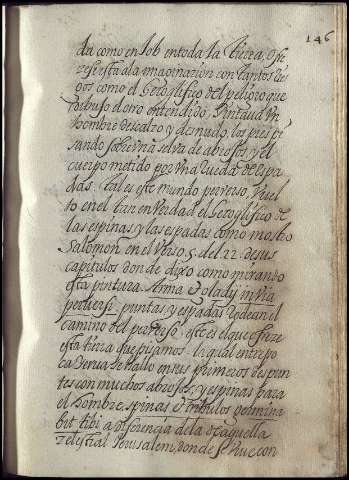 146
da como en Job en toda la tierra, ofre
zese esta a la imaginazion con tantos ries
gos como el Geroglifico del peligro que
dibujo otro entendido. Pintaud un
hombre descalzo y desnudo, los pies pi
sando sobre una selva de abrojos y el
cuerpo metido por una rueda de espa
das. tal es este mundo perverso, vuel
to en el tan en verdad el Geroglifico de
las espinas y las espadas como mostro
Salomon en el Verso, 5 del 22. de sus
capitulos donde dixo como mirando
esta pintura. Arma et gladij in via
perversi. puntas y espadas rodean el
camino del perverso. este es el que ofreze
esta tierra que pisamos. la qual entrepo
ca yerva se hallo en sus primeros despun
tes con muchos abrojos, y espinas para
el hombre. spinas et tribulos germina
bit tibi a diferencia de la de aquella
zelestial Jerusalem, donde se vive con